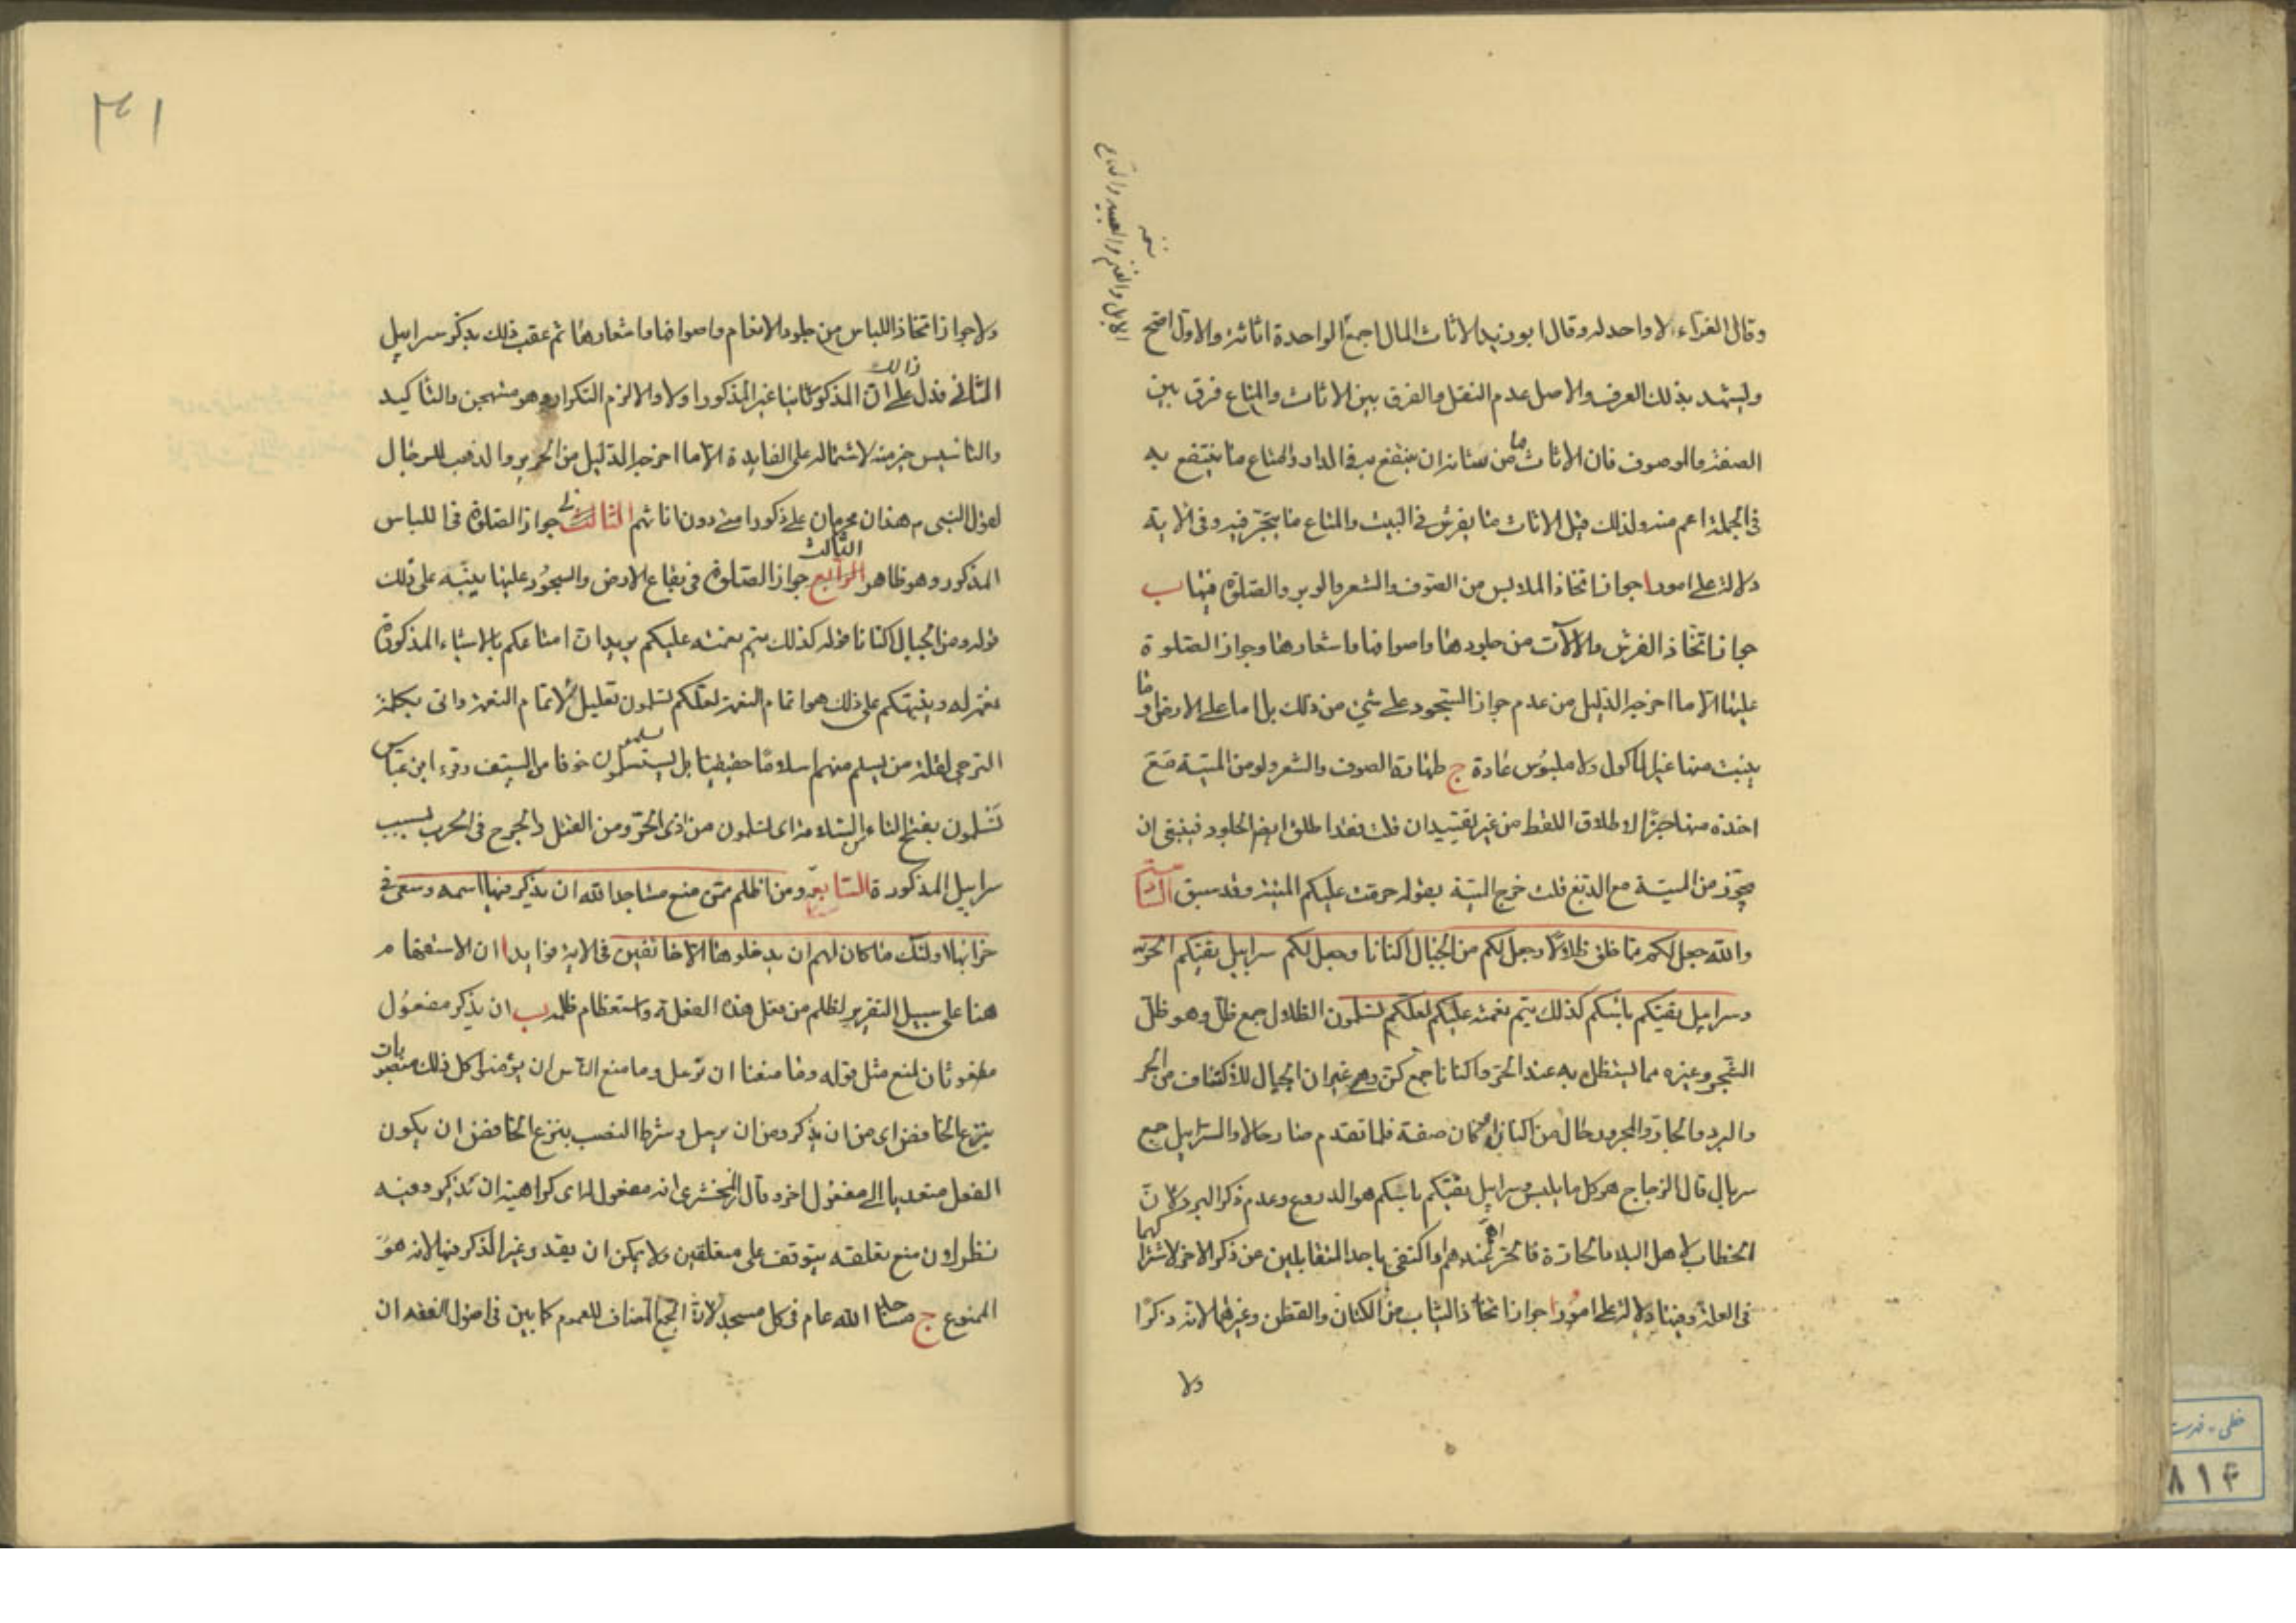 وقال الفراء لا واحد له وقال ابو زيد الاثاث المال اجمع الواحدة اثاثة والاول اصح
ويشهد بذلك العرف والاصل عدم النقل والفرق بين الاثاث والمتاع فرق بين
الصفة والموصوف فان الاثاث ما من شانه ان ينتفع به في الدار والمتاع ما ينتفع به
في الجملة اعم منه ولذلك قيل الاثاث ما يفرش في البيت والمتاع ما يتجر فيه وفي الاية
دلالة على امور ا جواز اتخاذ الملابس من الصوف والشعر والوبر والصلوة فيها ب
جواز اتخاذ الفرش والالات من جلودها واصوافها واشعارها وجواز الصلوة
عليها الا ما اخرجه الدليل من عدم جواز السجود على شئ من ذلك بل اما على الارض او ما
ينبت منها غير المأكول ولا ملبوس عادة ج طهارة الصوف والشعر ولو من الميتة مع
اخذه منها جزا لاطلاق اللفظ من غير تقييد ان قلت فقد اطلق ايضا الجلود فينبغي ان
يجوز من الميتة مع الدبغ قلت خرج الميتة بقوله حرمت عليكم الميتة وقد سبق السادسة
والله جعل لكم مما خلق ظلالا وجعل لكم من الجبال اكنانا وجعل لكم سرابيل تقيكم الحر
وسرابيل تقيكم باسكم كذلك يتم نعمته عليكم لعلكم تسلمون الظلال جمع ظل وهو ظل
الشجر وغيره مما يستظل به عند الحر واكنانا جمع كن وهي غيران الجبال للاكتناف من الحر
والبرد والجار والمجرور حال من اكنانا كان صفة فلما تقدم صار حالا والسرابيل جمع
سربال قال الزجاج هو كل ما يلبس وسرابيل تقيكم باسكم هو الدروع وعدم ذكر البرد لان
الخطاب لاهل البلاد الحارة فالحر اهم عندهم او اكتفى باحد المتقابلين عن ذكر الاخر لاشتراكهما
في العلة وفيها دلالة على امور ا جواز اتخاذ الثياب من الكتان والقطن وغيرهما لانه ذكر
ولا
نسخه
الابل والغنم والعبيد والمتاع
٣٤١
ولا جواز اتخاذ اللباس من جلود الانعام واصوافها واشعارها ثم عقب ذلك بذكر سرابيل
الثاني فدل ذلك على ان المذكور ثانيا غير المذكور اولا والا لزم التكرار وهو مستهجن والتاكيد
والتاسيس خير منه لاشتماله على الفايدة الا ما اخرجه الدليل من الحرير والذهب للرجال
لقول النبي هذان محرمان على ذكور امتي دون اناثهم الثالث جواز الصلوة في اللباس
المذكور وهو ظاهر الرابع الثالث جواز الصلوة في بقاع الارض والسجود عليها ينبه على ذلك
قوله ومن الجبال اكنانا قوله كذلك يتم نعمته عليكم يريد ان امتاعكم بالاشياء المذكورة
نعمة له وبقيتكم على ذلك هو اتمام النعمة لعلكم تسلمون تعليل لاتمام النعمة واتى بكلمة
الترجي لقلة من يسلم منهم اسلاما حقيقيا بل يستسلمون خوفا من السيف وقرء ابن عباس
تسلمون بفتح التاء من السلامة اى تسلمون من اذى الحر ومن القتل والجرح في الحرب بسبب
سرابيل المذكورة السابعة ومن اظلم ممن منع مساجد الله ان يذكر فيها اسمه وسعى في
خرابها اولئك ما كان لهم ان يدخلوها الا خائفين في الاية فوايد ا ان الاستفهام
هنا على سبيل التقرير لظلم من فعل هذه الفعلة واستعظام ظلمه ب ان يذكر مفعول
مفعول ثان لمنع مثل قوله وما منعنا ان نرسل وما منع الناس ان يؤمنوا كل ذلك منصوبات
بنزع الخافض اى من ان يذكر ومن ان نرسل وشرط النصب بنزع الخافض ان يكون
الفعل متعديا الى مفعول اخر وقال الزمخشري انه مفعول له اى كراهية ان تذكر وفيه
نظر لان منع تعلقه يتوقف على متعلقين ولا يمكن ان يقدر غير الذكر فيها لانه هو
الممنوع ج مساجد الله عام في كل مسجد لان الجمع المضاف للعموم كما بين في اصول الفقه ان
خطى - فهرست
٨١٤